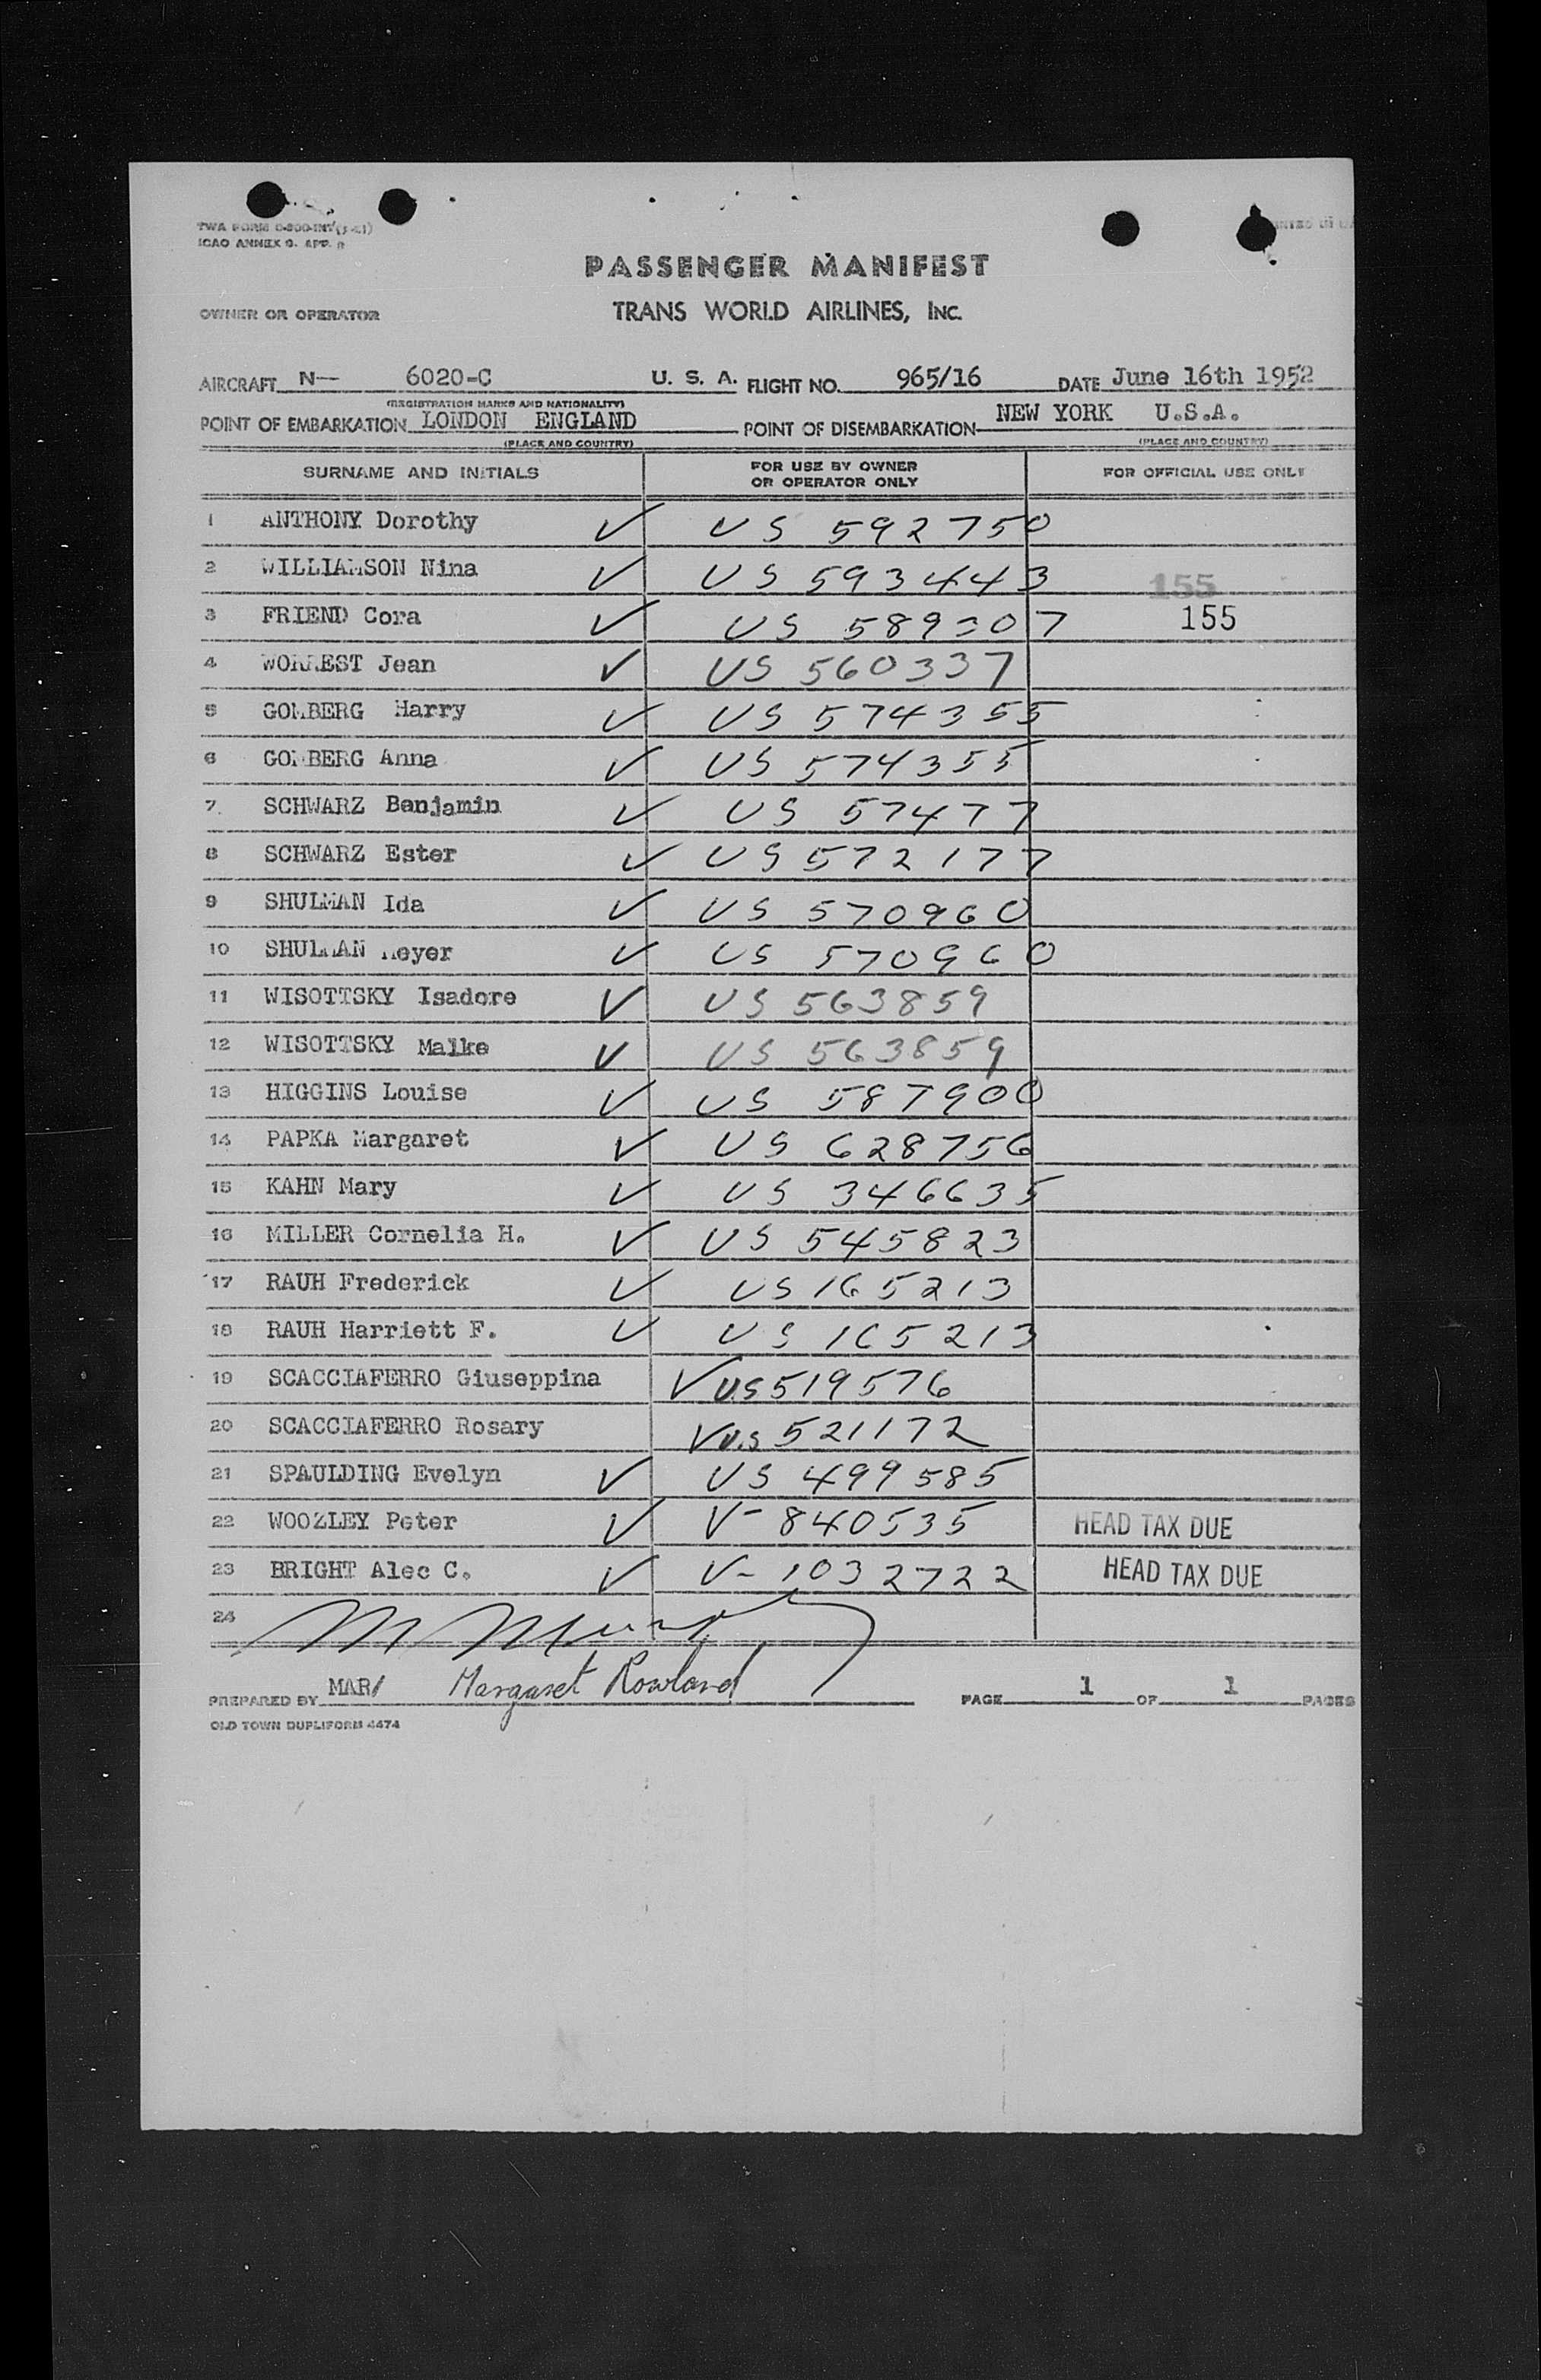 TWA FORM
ICAO ANNEX 9. APP.
PASSENGER MANIFEST
OWNER OR OPERATOR TRANS WORLD AIRLINES, INC.
AIRCRAFT N— 6020-C U. S. A. FLIGHT NO. 965/16 DATE June 16th 1952
(REGISTRATION MARKS AND NATIONALITY)
POINT OF EMBARKATION LONDON ENGLAND POINT OF DISEMBARKATION NEW YORK U.S.A.
(PLACE AND COUNTRY) (PLACE AND COUNTRY)
SURNAME AND INITIALS FOR USE BY OWNER OR OPERATOR ONLY FOR OFFICIAL USE ONLY
1 ANTHONY Dorothy ✓ US 592750
2 WILLIAMSON Nina ✓ US 593443 155
3 FRIEND Cora ✓ US 589307 155
4 WORREST Jean ✓ US 560337
5 GOMBERG Harry ✓ US 574355
6 GOMBERG Anna ✓ US 574355
7 SCHWARZ Benjamin ✓ US 57477
8 SCHWARZ Ester ✓ US 572177
9 SHULMAN Ida ✓ US 570960
10 SHULMAN Meyer ✓ US 570960
11 WISOTTSKY Isadore ✓ US 563859
12 WISOTTSKY Malke ✓ US 563859
13 HIGGINS Louise ✓ US 587900
14 PAPKA Margaret ✓ US 628756
15 KAHN Mary ✓ US 346635
16 MILLER Cornelia H. ✓ US 545823
17 RAUH Frederick ✓ US 165213
18 RAUH Harriett F. ✓ US 165213
19 SCACCIAFERRO Giuseppina ✓ U.S 519576
20 SCACCIAFERRO Rosary ✓ U.S 521172
21 SPAULDING Evelyn ✓ US 499585
22 WOOZLEY Peter ✓ V- 840535 HEAD TAX DUE
23 BRIGHT Alec C. ✓ V- 1032722 HEAD TAX DUE
24
PREPARED BY MAR/ Margaret Rowland PAGE 1 OF 1 PAGES
OLD TOWN DUPLIFORM 4474